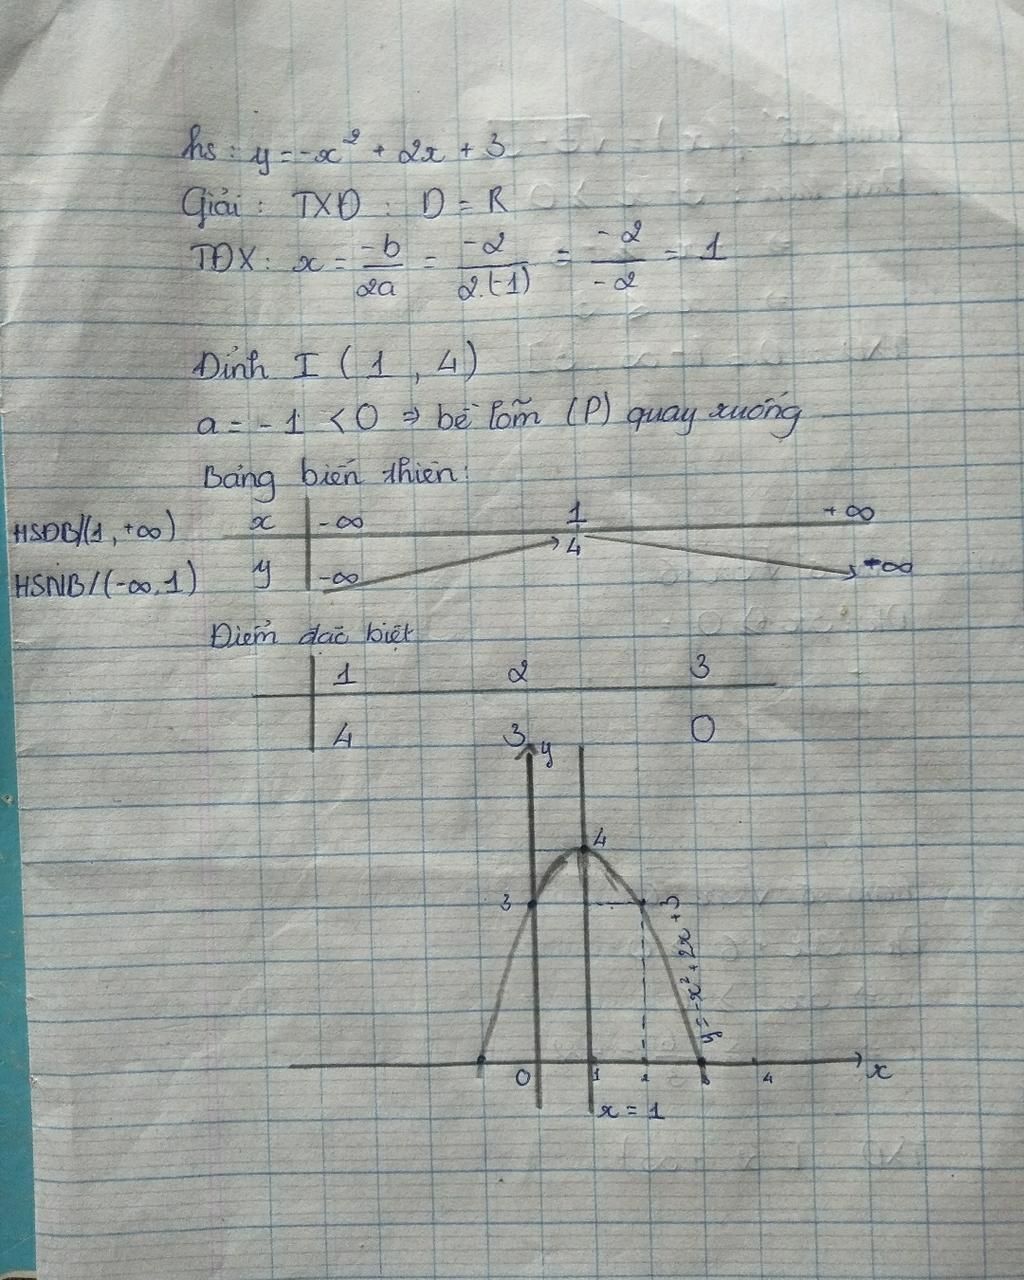 hs: y = -x² + 2x + 3
Giải: TXĐ: D = R
TĐX: x = -b/2a = -2/2.(-1) = -2/-2 = 1
Đỉnh I (1, 4)
a = -1 < 0 ⇒ bề lõm (P) quay xuống
Bảng biến thiên:
HSĐB/(1, +∞) x -∞ 1 +∞
HSNB/(-∞, 1) y -∞ 4 +∞
Điểm đặc biệt
1 2 3
4 3 0
y
4
3
y = -x² + 2x + 3
0 1 2 3 4 x
x = 1